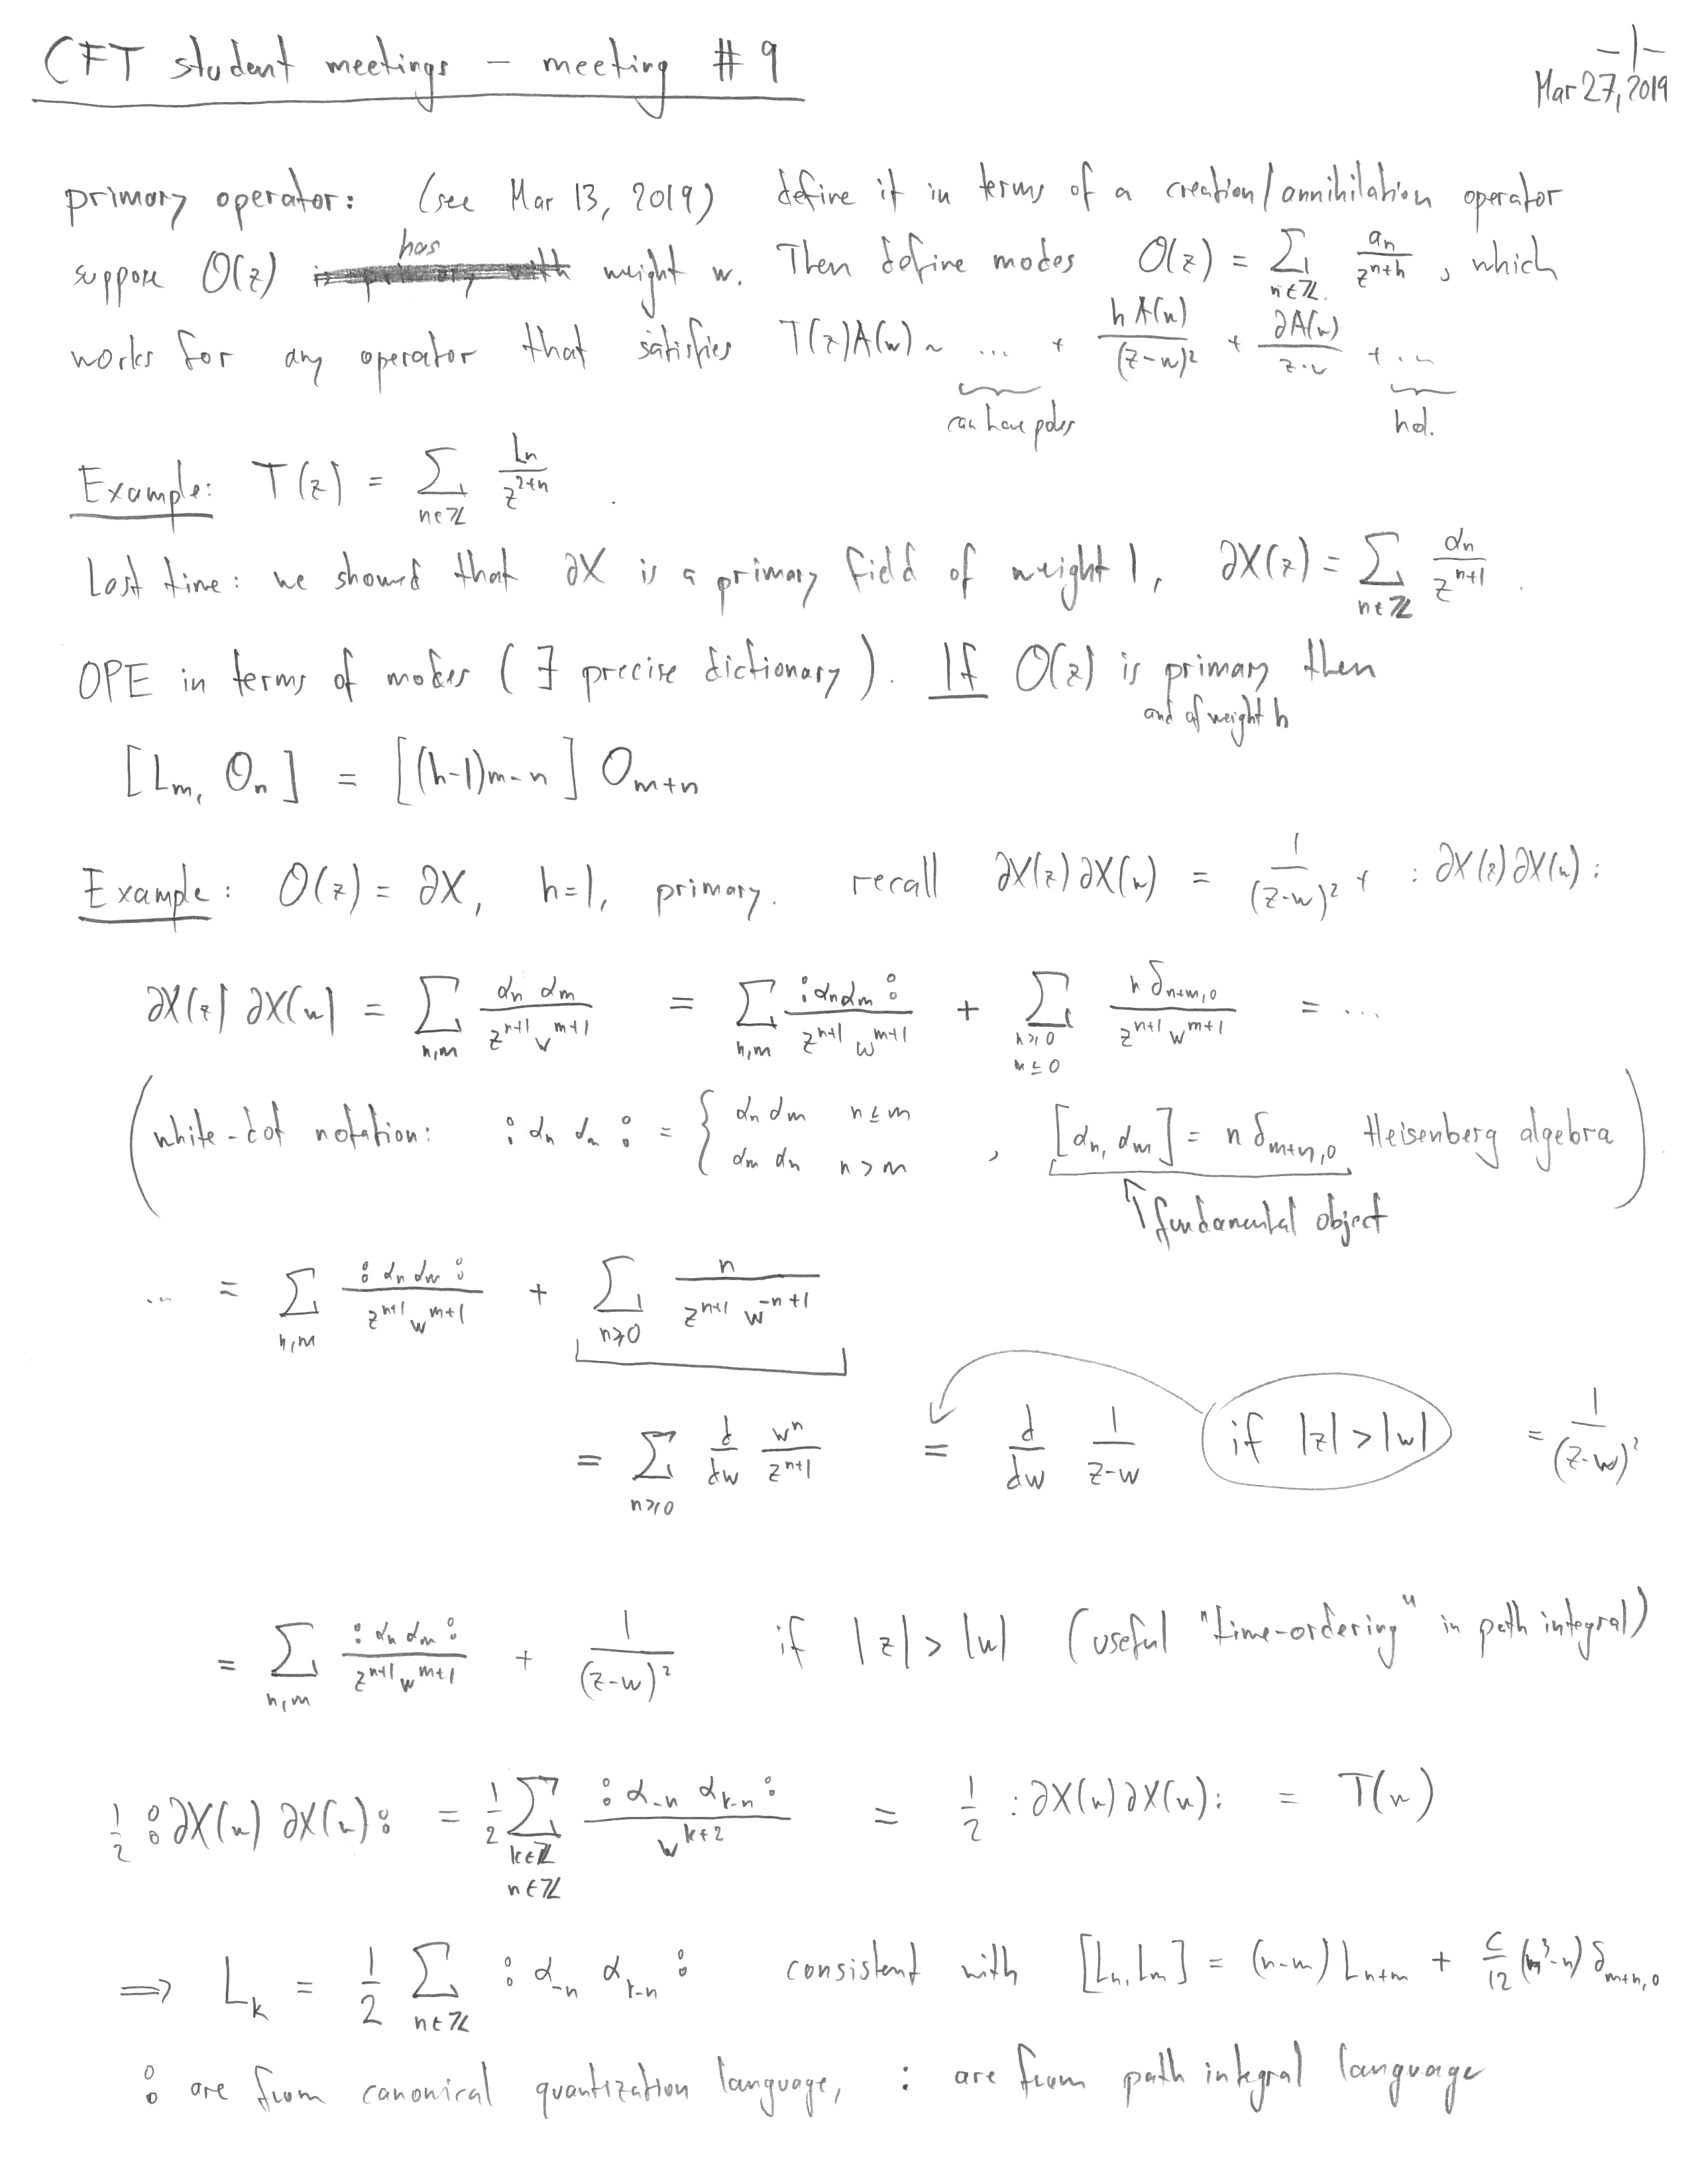 CFT student meetings – meeting #9
-1-
Mar 27, 2019
primary operator: (see Mar 13, 2019) define it in terms of a creation/annihilation operator
suppose O(z) has weight w. Then define modes O(z) = ∑_{n∈ℤ} a_n / z^{n+h}, which
works for any operator that satisfies T(z)A(w) ~ ... + hA(w)/(z-w)² + ∂A(w)/(z-w) + ...
can have poles hol.
Example: T(z) = ∑_{n∈ℤ} L_n / z^{2+n}.
Last time: we showed that ∂X is a primary field of weight 1, ∂X(z) = ∑_{n∈ℤ} α_n / z^{n+1}.
OPE in terms of modes (∃ precise dictionary). If O(z) is primary then
and of weight h
[L_m, O_n] = [(h-1)m-n] O_{m+n}
Example: O(z) = ∂X, h=1, primary. recall ∂X(z)∂X(w) = 1/(z-w)² + :∂X(z)∂X(w):
∂X(z) ∂X(w) = ∑_{n,m} α_n α_m / (z^{n+1} w^{m+1}) = ∑_{n,m} ⦂α_n α_m⦂ / (z^{n+1} w^{m+1}) + ∑_{n≥0, m≤0} n δ_{n+m,0} / (z^{n+1} w^{m+1}) = ...
(white-dot notation: ⦂α_n α_m⦂ = { α_n α_m n≤m
α_m α_n n>m , [α_n, α_m] = n δ_{m+n,0} Heisenberg algebra)
↑ fundamental object
... = ∑_{n,m} ⦂α_n α_m⦂ / (z^{n+1} w^{m+1}) + ∑_{n≥0} n / (z^{n+1} w^{-n+1})
= ∑_{n≥0} d/dw w^n / z^{n+1} = d/dw 1/(z-w) if |z|>|w| = 1/(z-w)²
= ∑_{n,m} ⦂α_n α_m⦂ / (z^{n+1} w^{m+1}) + 1/(z-w)² if |z|>|w| (useful "time-ordering" in path integral)
1/2 ⦂∂X(w) ∂X(w)⦂ = 1/2 ∑_{k∈ℤ, n∈ℤ} ⦂α_{-n} α_{k-n}⦂ / w^{k+2} = 1/2 :∂X(w)∂X(w): = T(w)
⟹ L_k = 1/2 ∑_{n∈ℤ} ⦂α_{-n} α_{k-n}⦂ consistent with [L_n, L_m] = (n-m) L_{n+m} + c/12 (n³-n) δ_{m+n,0}
⦂ are from canonical quantization language, : are from path integral language